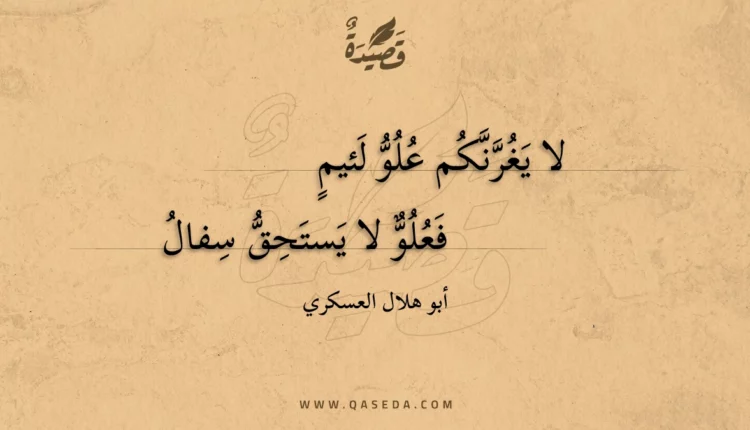 قَصِيدَةٌ
لا يَغُرَّنَّكُم عُلُوُّ لَئيمٍ
فَعُلُوٌّ لا يَستَحِقُّ سِفالُ
أبو هلال العسكري
WWW.QASEDA.COM